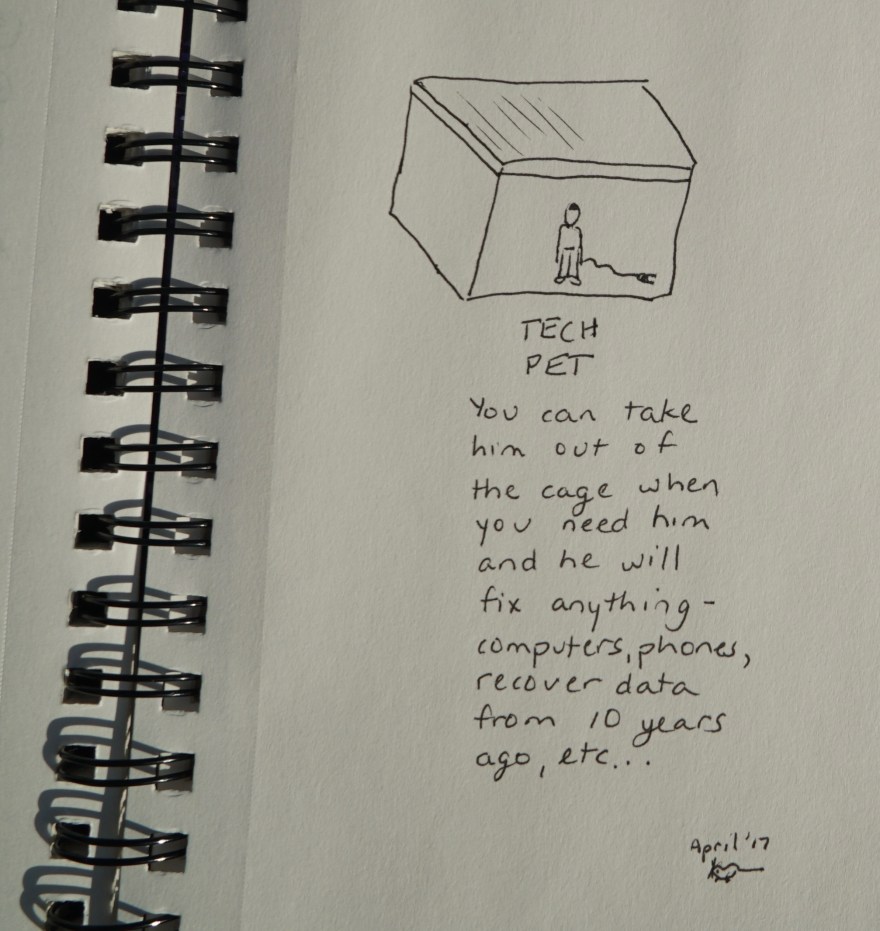 TECH
PET
You can take
him out of
the cage when
you need him
and he will
fix anything-
computers, phones,
recover data
from 10 years
ago, etc...
April '17